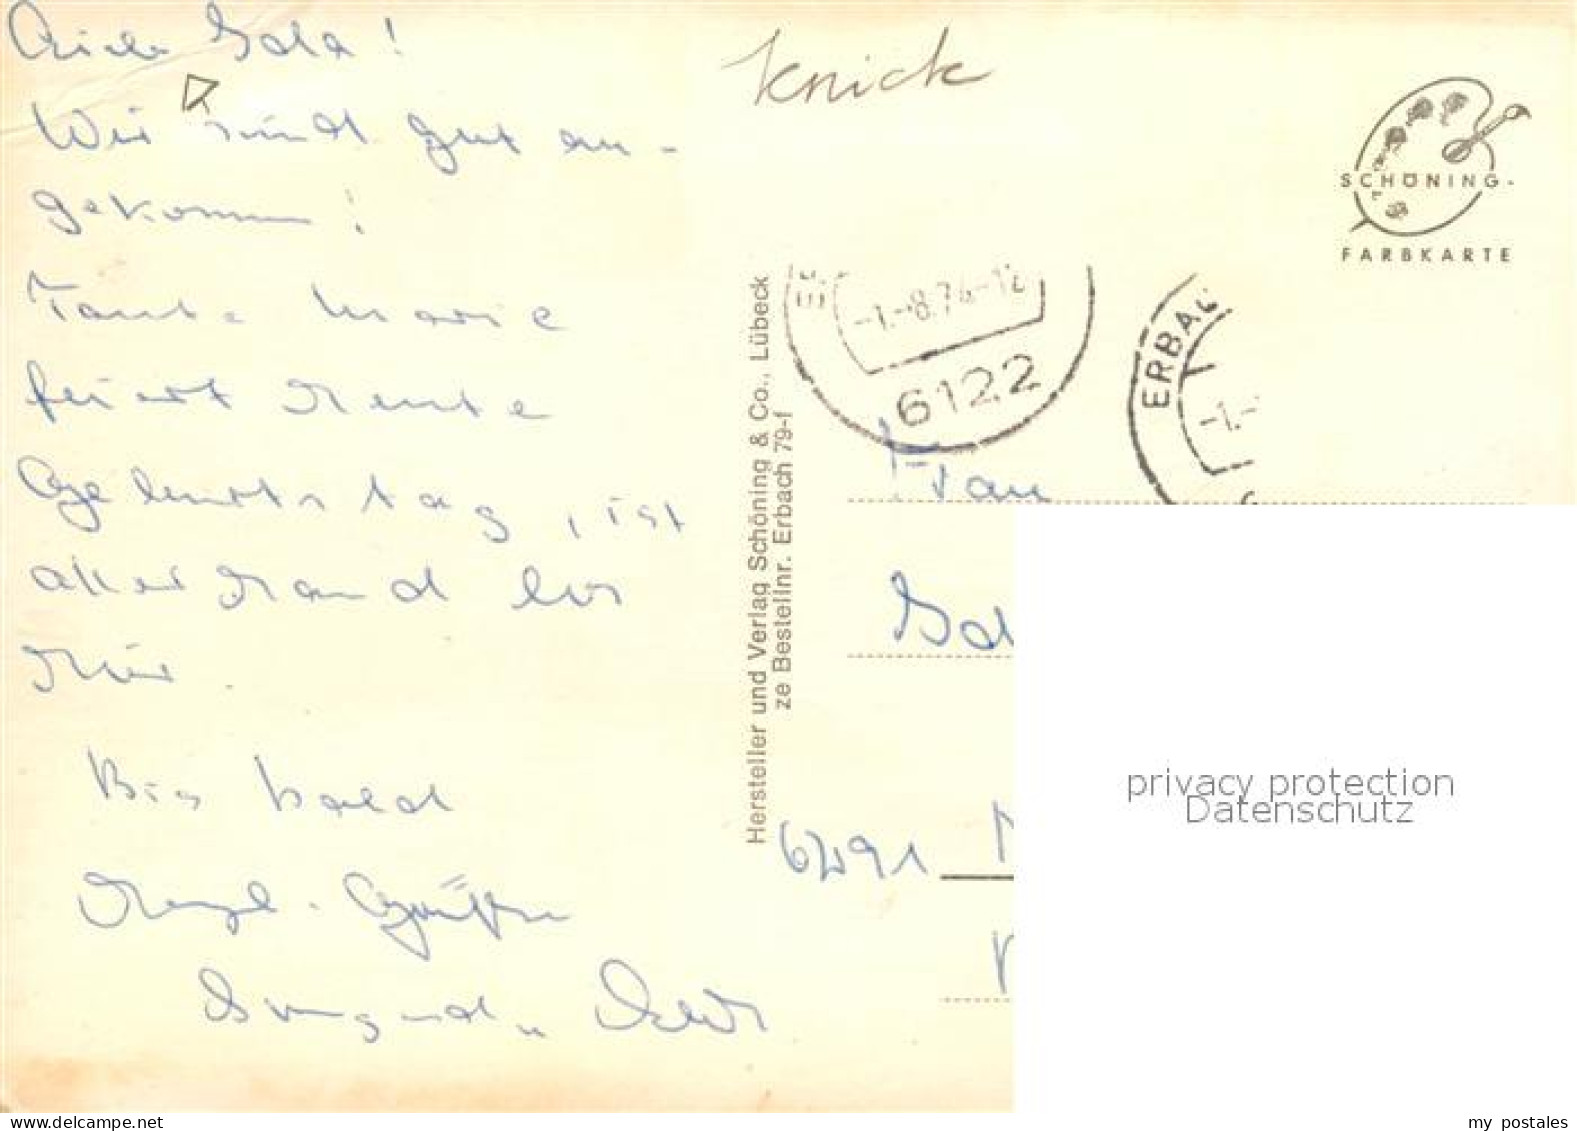 Wir sind gut an-
gekommen!
Tante Marie
feiert heute
Geburtstag, ist
allerhand los
hier.
Bis bald
Herzl. Grüße
Irmgard u.
Knick
SCHÖNING-
FARBKARTE
Hersteller und Verlag Schöning & Co., Lübeck
ze Bestellnr. Erbach 79-f
-1.-8.74-12
6122
ERBAC
-1.-
Frau
6291
privacy protection
Datenschutz
my postales